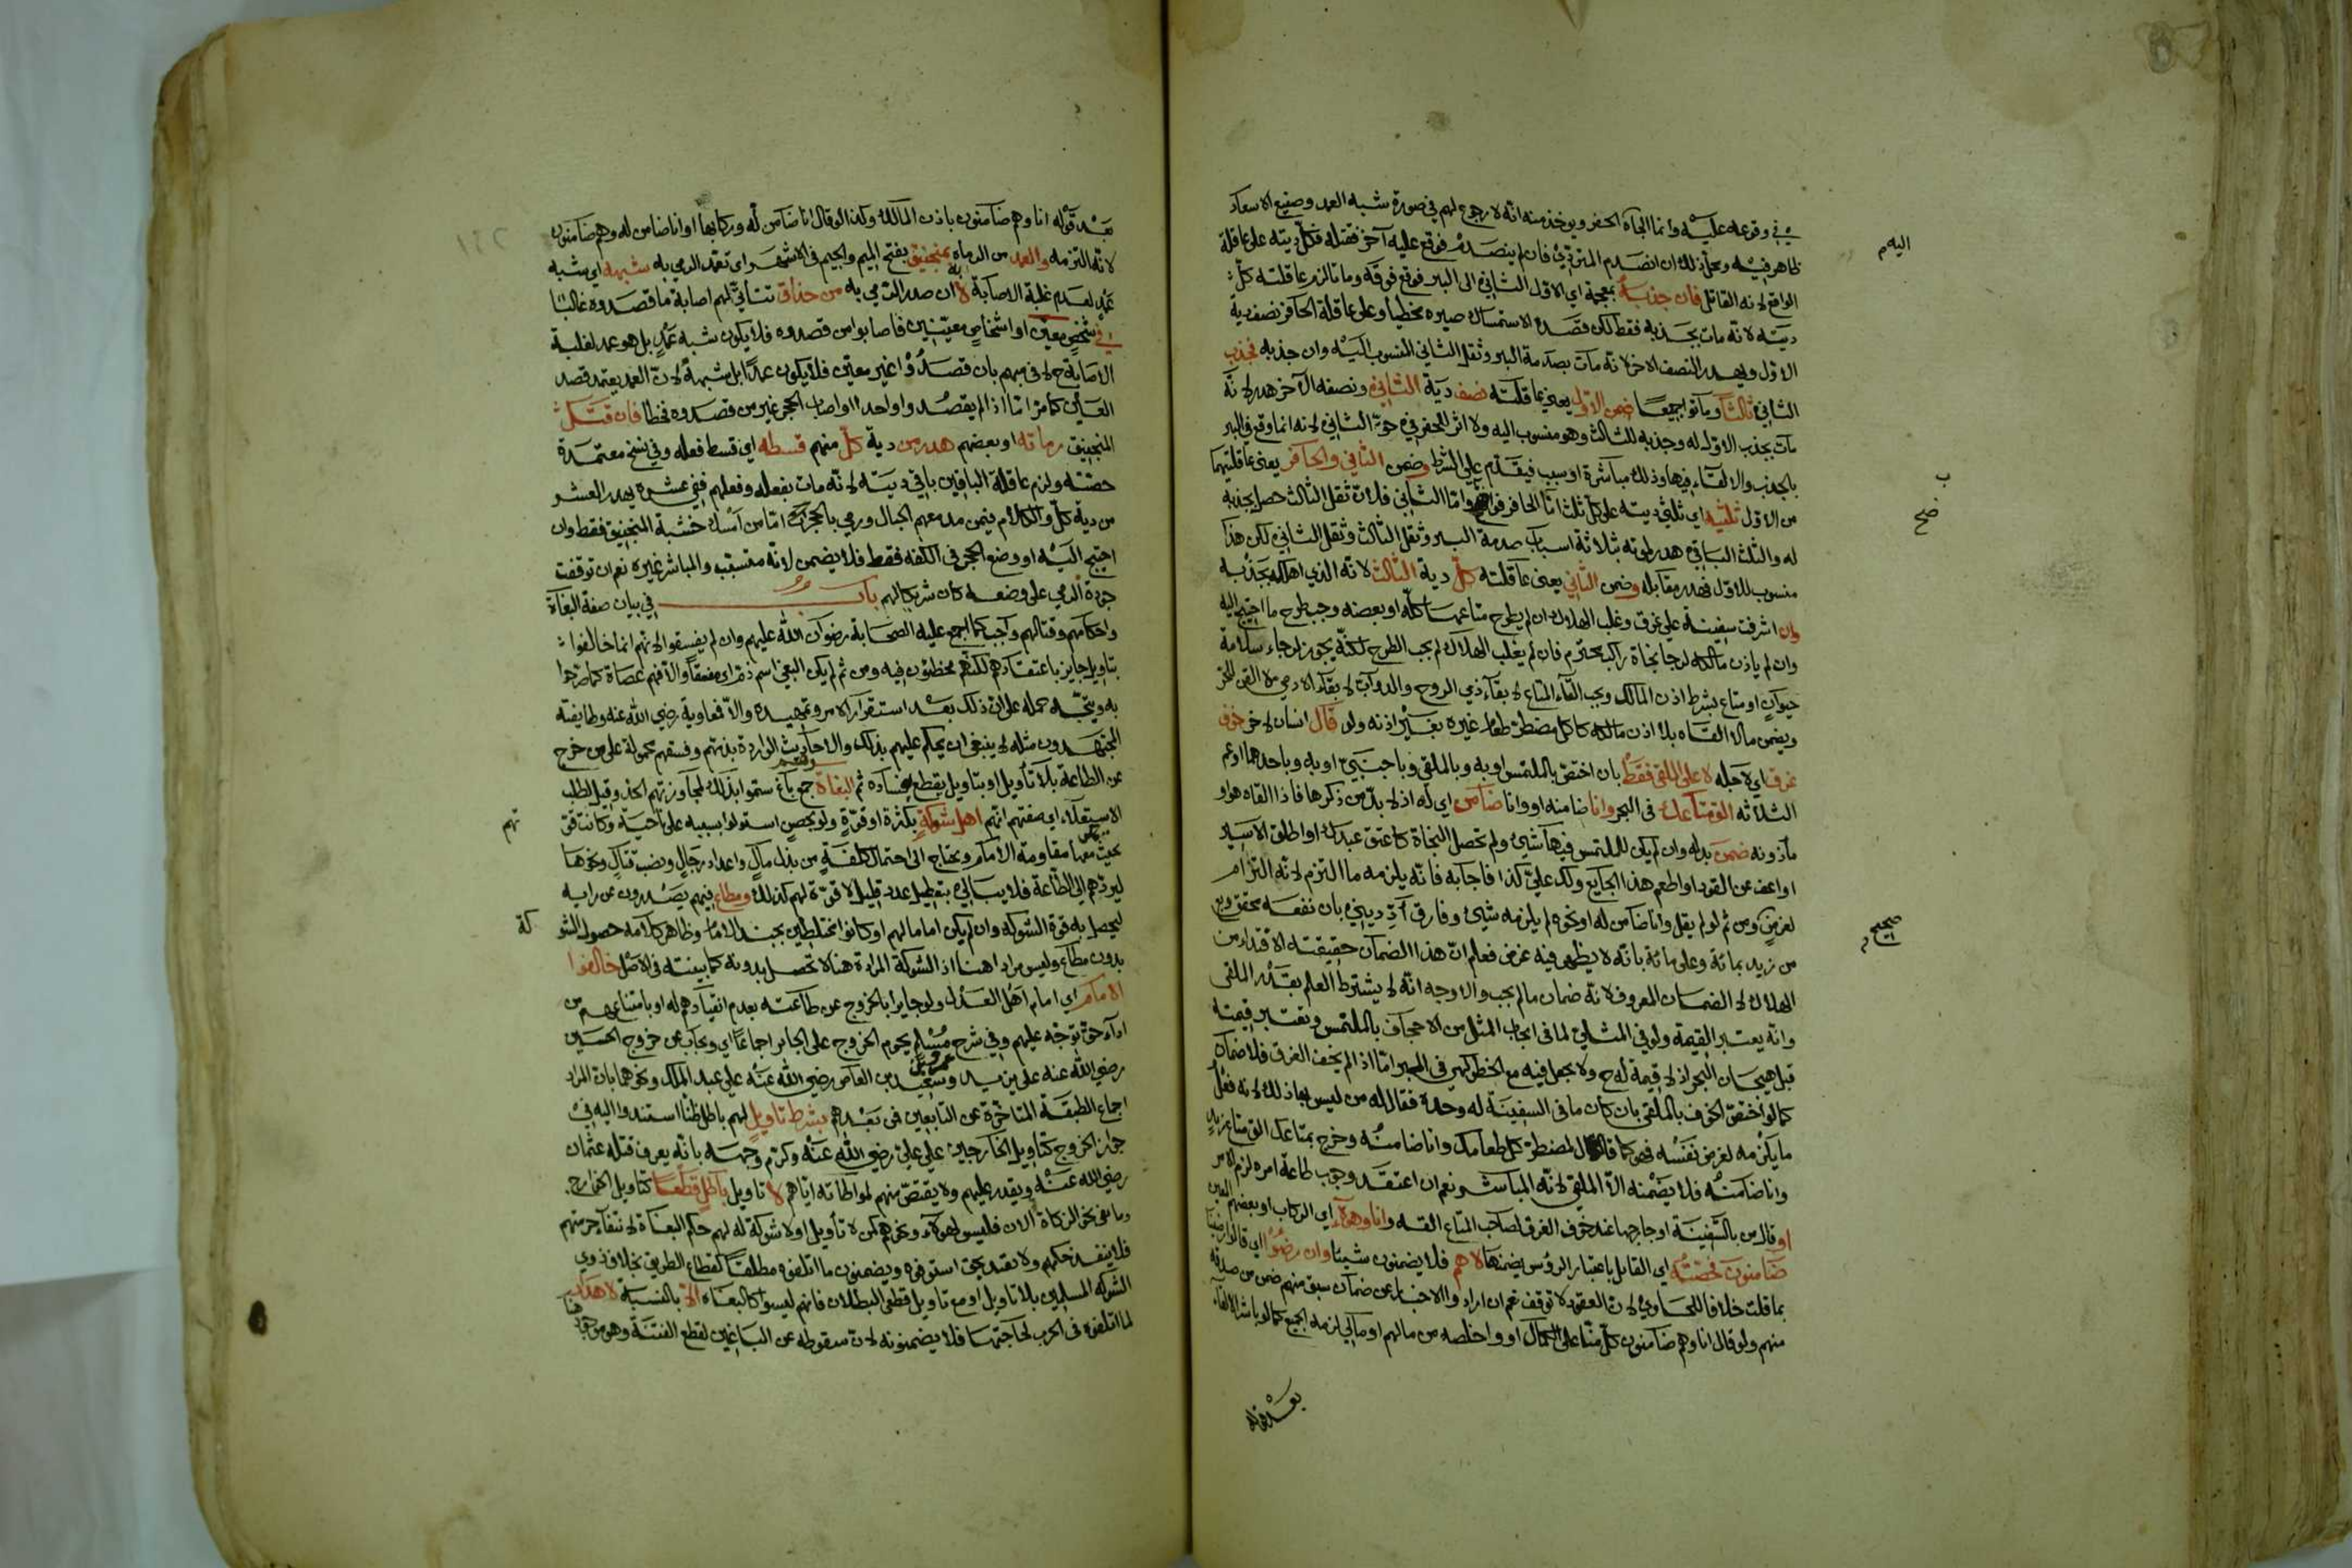 في وقوعه عليه وانما الجأه الحفر ويوخذ منه انه لا رجوع لهم في صورة شبه العمد وصنيع الاسعاد
ظاهر فيه ومحل ذلك ان انصدم المتردي فان لم ينصدم فوقع عليه آخر فقتله فكل ديته على عاقلة
الواقع لانه القاتل فان جذب بمعجمة اي الاول الثاني الى البير فوقع فوقه وماتا لزم عاقلته كل
ديته لانه مات بجذبه فقط لكن قصده الاستمساك صيره مخطيا وعلى عاقلة الحافر نصف دية
الاول ويهدر النصف الاخر لانه مات بصدمة البير وثقل الثاني المنسوب اليه وان جذبه فجذب
الثاني ثالثا وماتوا جميعا ضمن الاول يعني عاقلته نصف دية الثاني ونصفه الآخر هدر لانه
مات بجذب الاول له وجذبه للثالث وهو منسوب اليه ولا اثر للحفر في حق الثاني لانه انما وقع في البير
بالجذب والالقاء فيها وذلك مباشرة او سبب فيقدم على الشرط وضمن الثاني والحافر يعني عاقلتيهما
من الاول ثلثيه اي ثلثي ديته على كل ثلث اما الحافر واما الثاني فلان ثقل الثالث حصل بجذبه
له والثلث الباقي هدر لموته بثلاثة اسباب صدمة البير وثقل الثالث وثقل الثاني لكن هذا
منسوب للاول فهدر مقابله وضمن الثاني يعني عاقلته كل دية الثالث لانه الذي اهلكه بجذبه
وان اشرفت سفينة على غرق وغلب الهلاك ان لم يطرح متاعها كله او بعضه وجب طرح ما احتيج اليه
وان لم ياذن مالكه لرجا نجاة راكب محترم فان لم يغلب الهلاك لم يجب الطرح لكنه يجوز لرجاء سلامة
حيوان او متاع بشرط اذن المالك ويجب القآء المتاع لابقآء ذي الروح والدواب لابقآء الادمي
ويضمن مالا القاه بلا اذن مالكه كاكل مضطر طعام غيره بغير اذنه ولو قال انسان لاخر خوف
غرق اي لاجله لا على الملقي فقط بان اختص بالملتمس او به وبالملقي وباجنبي او به وباحدهما او عم
الثلاثة الق متاعك في البحر وانا ضامنه او وانا ضامن اي له اذ لا بد من ذكرها فاذا القاه هو او
مأذونه ضمن بدله وان لم يكن للملتمس فيها شيئ ولم تحصل النجاة كاعتق عبدك او اطلق الاسير
او اعف عن القود او اطعم هذا الجايع ولك علي كذا فاجابه فانه يلزمه ما التزم لانه التزام
لغرض ومن ثم لو لم يقل وانا ضامن له او نحوه لم يلزمه شيئ وفارق ادّ ديني بان نفعه محقق
من زيد بمائة وعلي مائة بانه لا يظهر فيه غرض فعلم ان هذا الضمان حقيقته الافتداء من
الهلاك لا الضمان المعروف لانه ضمان ما لم يجب والاوجه انه لا يشترط العلم بقدر الملقى
وانه يعتبر القيمة ولو في المثلي لما في ايجاب المثل من الاجحاف بالملتمس وتعتبر قيمته
قبل هيجان البحر اذ لا قيمة له ح ولا يجعل فيه مع الخطر كهي في البر اما اذا لم يخف الغرق فلا ضمان
كما لو اختص الخوف بالملقي بان كان ما في السفينة له وحده فقال له من ليس بها ذلك لانه فعل
ما يلزمه لغرض نفسه فهو كما قال لمضطر كل طعامك وانا ضامنه وخرج بمتاعك الق متاع زيد
وانا ضامنه فلا يضمنه الا الملقي لانه المباشر نعم ان اعتقد وجوب طاعة امره لزم الامر
او قال من بالسفينة او خارجها عند خوف الغرق لصاحب المتاع القه وانا وهؤلاء اي الركاب او بعضهم
ضامنون فحصته اي القايل باعتبار الرؤس يضمنها لا هم فلا يضمنون شيئا وان رضوا اي قالوا رضينا
بما قلت خلافا للحاوي لان العقود لا توقف نعم ان ارادوا الاخبار عن ضمان سبق منهم ضمن من صدقه
منهم ولو قال انا وهم ضامنون كل منا على الكمال او واخلصه من مالهم او مالي لزمه الجميع كما لو باشر الالقاء
بعد قوله
اليهم
ب
صح
صحيح
بعد قوله انا وهم ضامنون باذن المالك وكذا لو قال انا ضامن له وركابها او انا ضامن له وهم ضامنون
لانه التزمه والعمد من الرماة بمنجنيق بفتح الميم والجيم في الاشهر اي تعمد الرمي به شبهه اي شبه
عمد لعدم غلبة الاصابة لا ان صدر الرمي به من حذاق تتأتى لهم اصابة ما قصدوه غالبا
في شخص معين او اشخاص معينين فاصابوا من قصدوه فلا يكون شبه عمد بل هو عمد لغلبة
الاصابة ح لا في مبهم بان قصدوا غير معين فلا يكون عمدا بل شبهه لان العمد يعتمد قصد
العين كما مر اما اذا لم يقصدوا واحدا او اصاب الحجر غير من قصدوه فخطا فان قتل
المنجنيق رماته او بعضهم هدر من دية كل منهم قسطه اي قسط فعله وفي نسخ معتمدة
حصته ولزم عاقلة الباقين باقي ديته لانه مات بفعله وفعلهم ففي عشرة يهدر العشر
من دية كل والكلام فيمن مد معهم الحبال ورمي بالحجر اما من امسك خشبة المنجنيق فقط وان
احتيج اليه او وضع الحجر في الكفه فقط فلا يضمن لانه متسبب والمباشر غيره نعم ان توقفت
جودة الرمي على وضعه كان شريكا لهم باب في بيان صفة البغاة
واحكامهم وقتالهم واجب كما اجمع عليه الصحابة رضوان الله عليهم وان لم يفسقوا لانهم انما خالفوا
بتاويل جايز باعتقادهم لكنهم مخطئون فيه ومن ثم لم يكن البغي اسم ذم اي مفسقا والا فهم عصاة كما صرحوا
به ويتجه حمله على ان ذلك بعد استقرار الامر وتمهيده والا فمعاوية رضي الله عنه وطايفته
المجتهدون مثله لا ينبغي ان يحكم عليهم بذلك والاحاديث الواردة بذمهم وفسقهم محمولة على من خرج
عن الطاعة بلا تأويل او بتاويل يقطع بفساده ثم البغاة جمع باغ سموا بذلك لمجاوزتهم الحد وقيل لطلب
الاستعلاء اي صفتهم انهم اهل شوكة بكثرة او قوة ولو بحصن استولوا بسببه على ناحية وكانت قو
تهم
بحيث يمكن معها مقاومة الامام ويحتاج الى احتمال كلفة من بذل مال واعداد رجال ونصب قتال ونحوها
ليردهم الى الطاعة فلا يبالي بتعطيل عدد قليل لا قوة لهم كذلك ومطاع فيهم يصدرون عن رايه
ليحصل به قوة الشوكه وان لم يكن اماما لهم او كانوا مختلطين بجند الامام وظاهر كلامه حصول الشو
كة
بدون مطاع وليس مرادا هنا اذ الشوكة المرادة هنا لا تحصل بدونه كما بينته في الاصل خالفوا
الامام اي امام اهل العدل ولو جايرا بالخروج عن طاعته بعدم انقيادهم له او بامتناعهم من
اداء حق توجه عليهم وفي شرح مسلم يحرم الخروج على الجاير اجماعا اي ويجاب عن خروج الحسين
رضي الله عنه على يزيد وعمرو بن سعيد بن العاص رضي الله عنه على عبد الملك ونحوهما بان المراد
اجماع الطبقة المتاخرة عن التابعين فمن بعدهم بشرط تاويل لهم باطل ظنا استندوا اليه في
جواز الخروج كتاويل الخارجين على علي رضي الله عنه وكرم وجهه بانه يعرف قتلة عثمان
رضي الله عنه ويقدر عليهم ولا يقتص منهم لمواطاته اياهم لا تاويل باطل قطعا كتاويل الخوارج
ومانعي نحو الزكاة الان فليس لهؤلاء ونحوهم كمن لا تأويل او لا شوكة له لهم حكم البغاة لانتفاء حرمتهم
فلا ينفذ حكمهم ولا يعتد بحق استوفوه ويضمنون ما اتلفوه مطلقا كقطاع الطريق بخلاف ذوي
الشوكه المسلمين بلا تاويل او مع تاويل قطعي البطلان فانهم ليسوا كالبغاة الا بالنسبة لاهدار
لما اتلفوه في الحرب لحاجتها فلا يضمنونه لان سقوطه عن الباغين لقطع الفتنة وهو موجود هنا